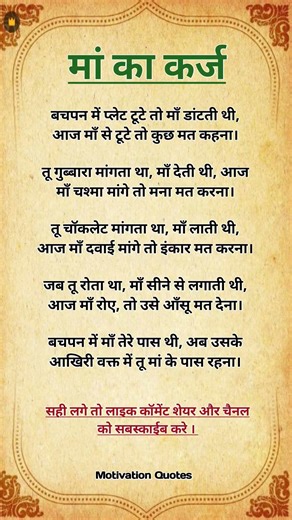 मां का कर्ज
बचपन में प्लेट टूटे तो माँ डांटती थी,
आज माँ से टूटे तो कुछ मत कहना।
तू गुब्बारा मांगता था, माँ देती थी, आज
माँ चश्मा मांगे तो मना मत करना।
तू चॉकलेट मांगता था, माँ लाती थी,
आज माँ दवाई मांगे तो इंकार मत करना।
जब तू रोता था, माँ सीने से लगाती थी,
आज माँ रोए, तो उसे आँसू मत देना।
बचपन में माँ तेरे पास थी, अब उसके
आखिरी वक्त में तू मां के पास रहना।
सही लगे तो लाइक कॉमेंट शेयर और चैनल
को सबस्काईब करे ।
Motivation Quotes